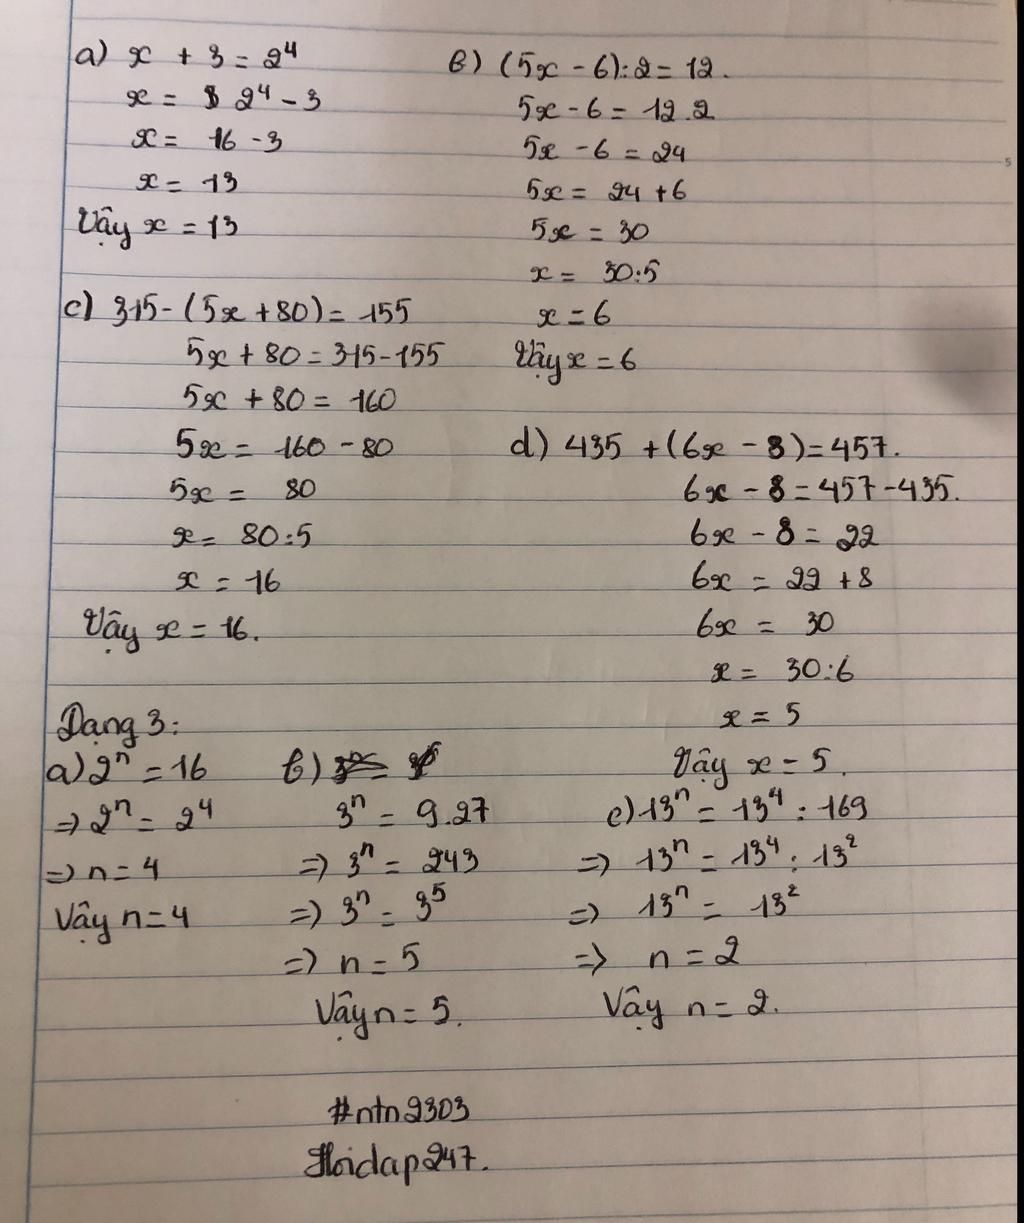 a) x + 3 = 2⁴
x = 2⁴ - 3
x = 16 - 3
x = 13
Vậy x = 13
b) (5x - 6) : 2 = 12.
5x - 6 = 12 . 2
5x - 6 = 24
5x = 24 + 6
5x = 30
x = 30 : 5
x = 6
Vậy x = 6
c) 315 - (5x + 80) = 155
5x + 80 = 315 - 155
5x + 80 = 160
5x = 160 - 80
5x = 80
x = 80 : 5
x = 16
Vậy x = 16.
d) 435 + (6x - 8) = 457.
6x - 8 = 457 - 435.
6x - 8 = 22
6x = 22 + 8
6x = 30
x = 30 : 6
x = 5
Vậy x = 5.
Dạng 3:
a) 2ⁿ = 16
=> 2ⁿ = 2⁴
=> n = 4
Vậy n = 4
b)
3ⁿ = 9.27
=> 3ⁿ = 243
=> 3ⁿ = 3⁵
=> n = 5
Vậy n = 5.
c) 13ⁿ = 13⁴ : 169
=> 13ⁿ = 13⁴ : 13²
=> 13ⁿ = 13²
=> n = 2
Vậy n = 2.
#ntn2303
Hoidap247.
5